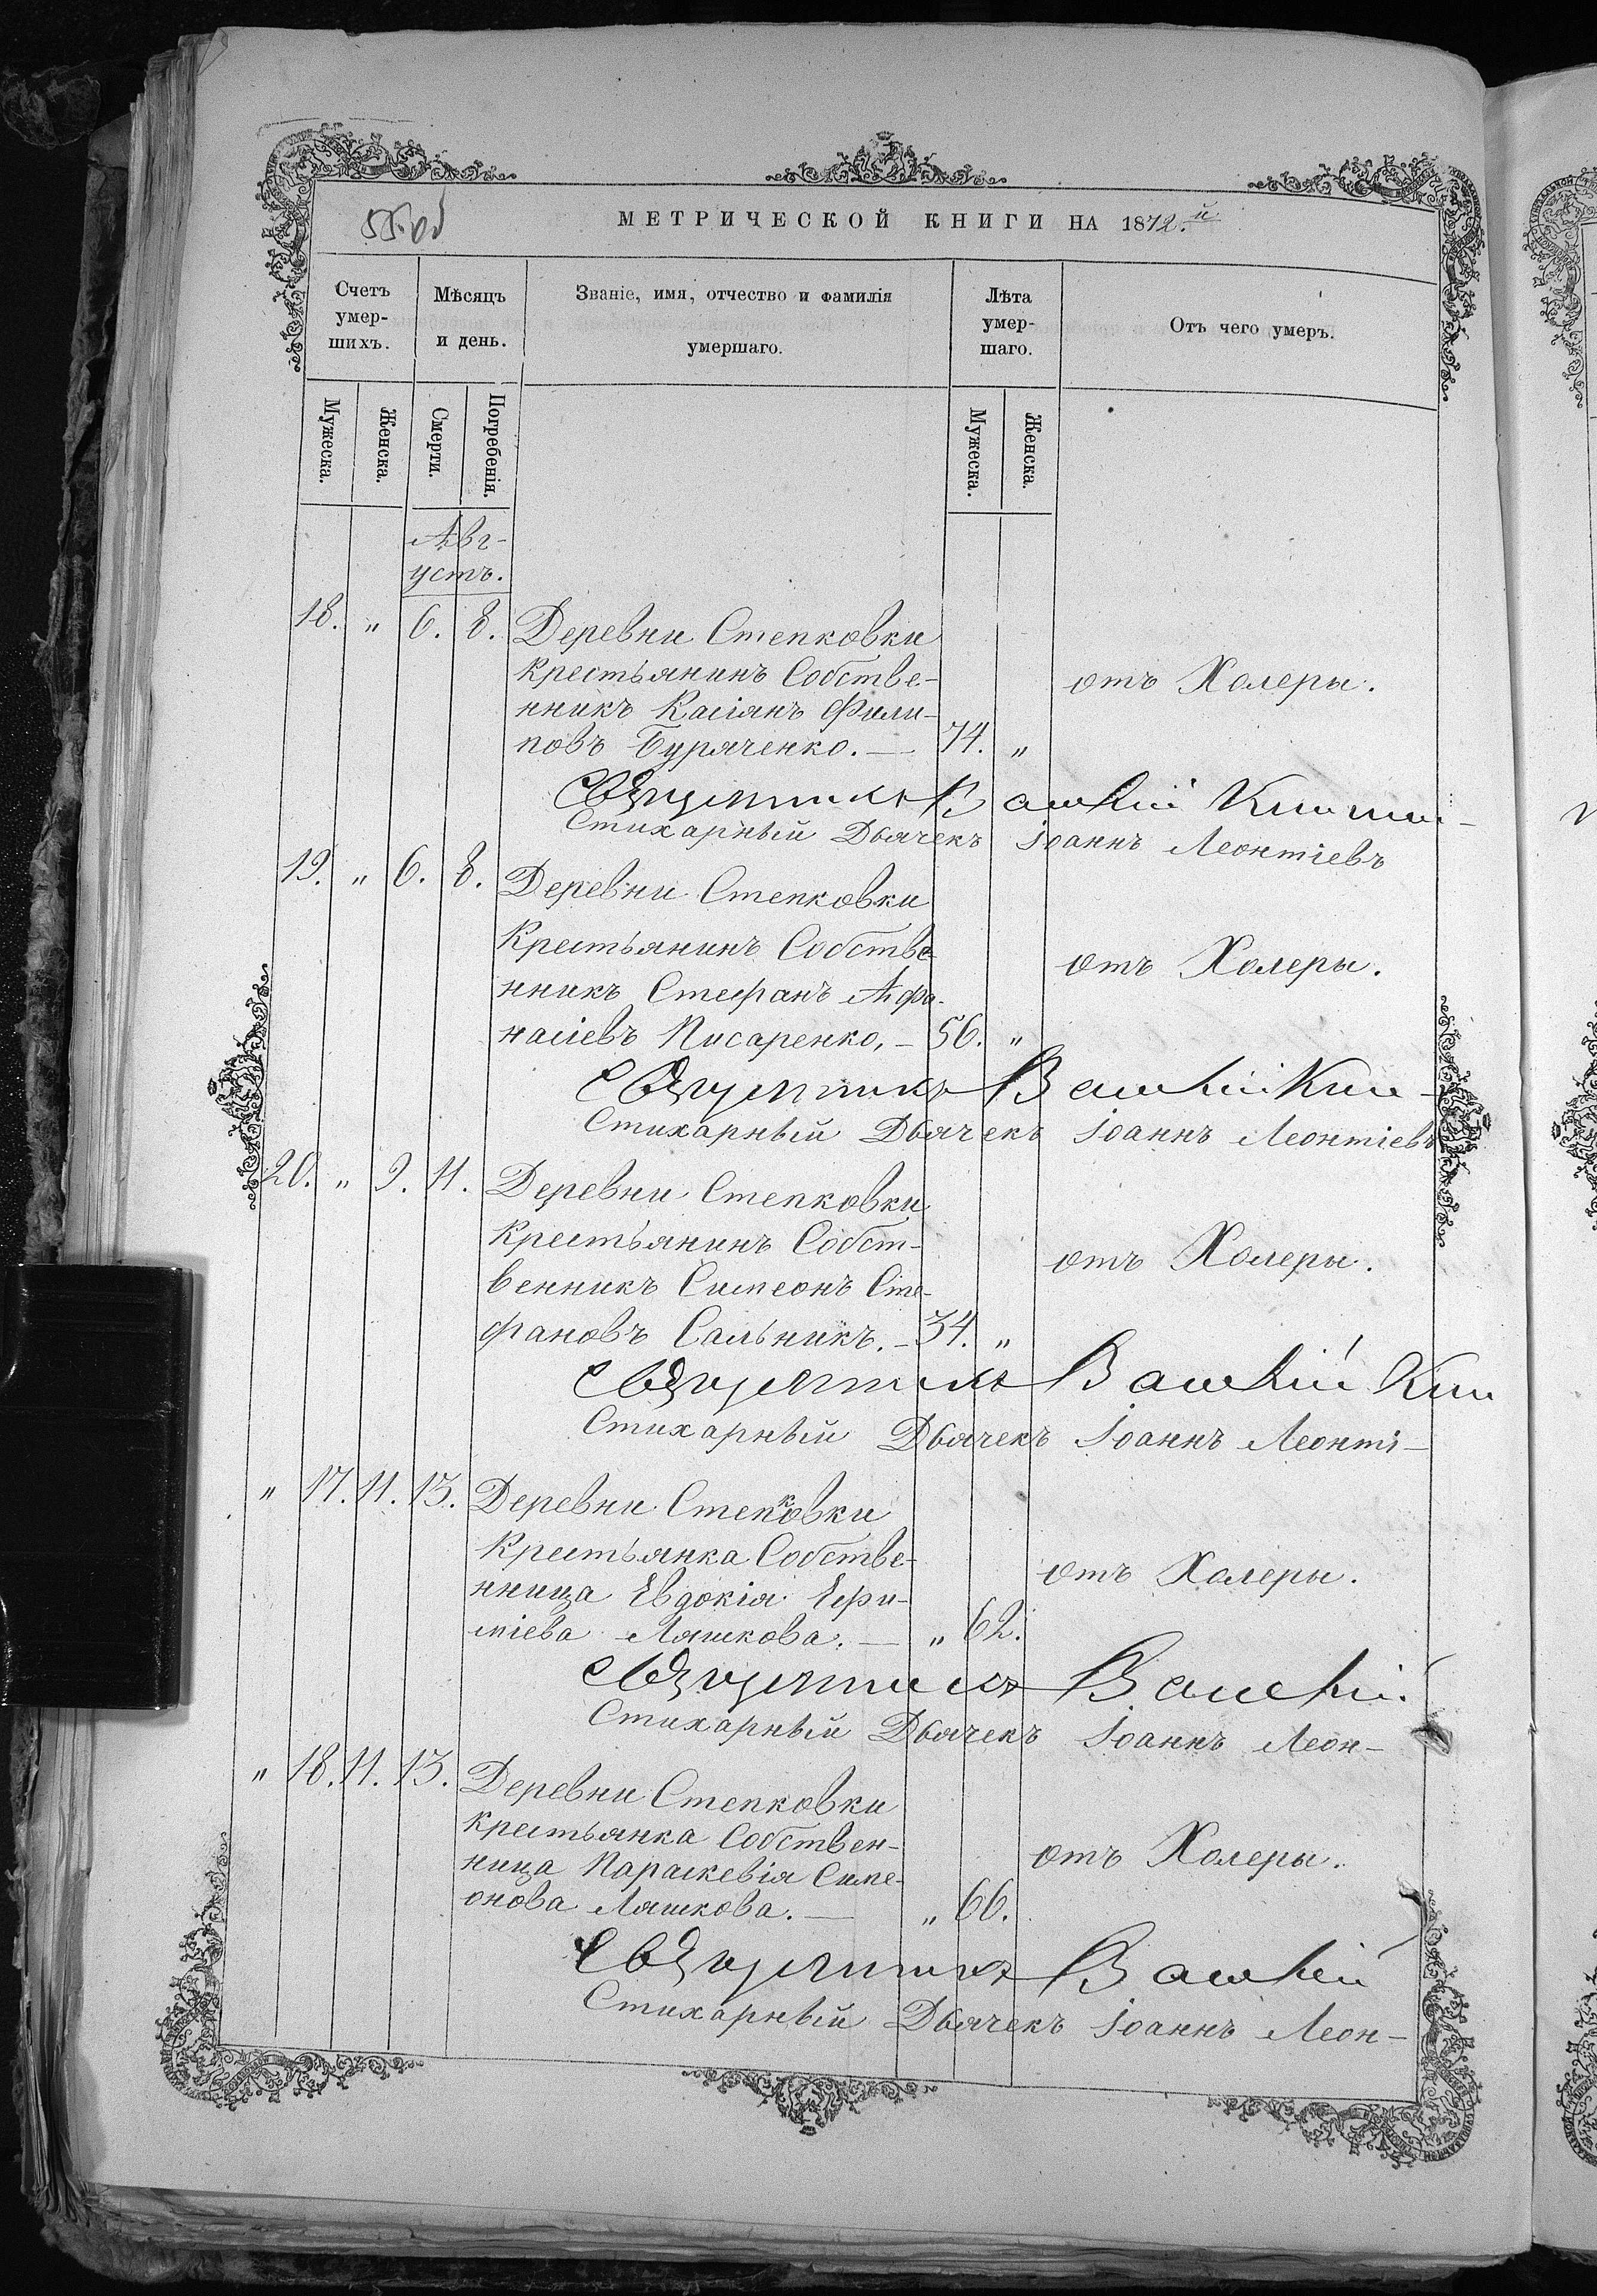 МЕТРИЧЕСКОЙ КНИГИ НА 1872.й
Счетъ умер-шихъ.
Мѣсяцъ и день.
Званіе, имя, отчество и фамилія умершаго.
Лѣта умер-шаго.
Отъ чего умеръ.
Мужеска.
Женска.
Смерти.
Погребенія.
Мужеска.
Женска.
Авг-
устъ.
18. " 6. 8. Деревни Степковки
крестьянинъ Собстве-
нникъ Касіянъ Фили-
повъ Буряченко. — 74. "
отъ Холеры.
Священникъ
Стихарный Дьячекъ Іоаннъ Леонтіевъ
19. " 6. 8. Деревни Степковки
Крестьянинъ Собстве-
нникъ Стефанъ Афа-
насіевъ Писаренко, — 56. "
отъ Холеры.
Священникъ
Стихарный Дьячекъ Іоаннъ Леонтіевъ
20. " 9. 11. Деревни Степковки
Крестьянинъ Собст-
венникъ Симеонъ Сте-
фановъ Сальникъ. — 34. "
отъ Холеры.
Священникъ
Стихарный Дьячекъ Іоаннъ Леонті-
" 17. 11. 13. Деревни Степковки
Крестьянка Собстве-
нница Евдокія Ефи-
міева Ляшкова. — " 62.
отъ Холеры.
Священникъ
Стихарный Дьячекъ Іоаннъ Леон-
" 18. 11. 13. Деревни Степковки
крестьянка Собствен-
ница Параскевія Симе-
онова Ляшкова. — " 66.
отъ Холеры.
Священникъ
Стихарный Дьячекъ Іоаннъ Леон-